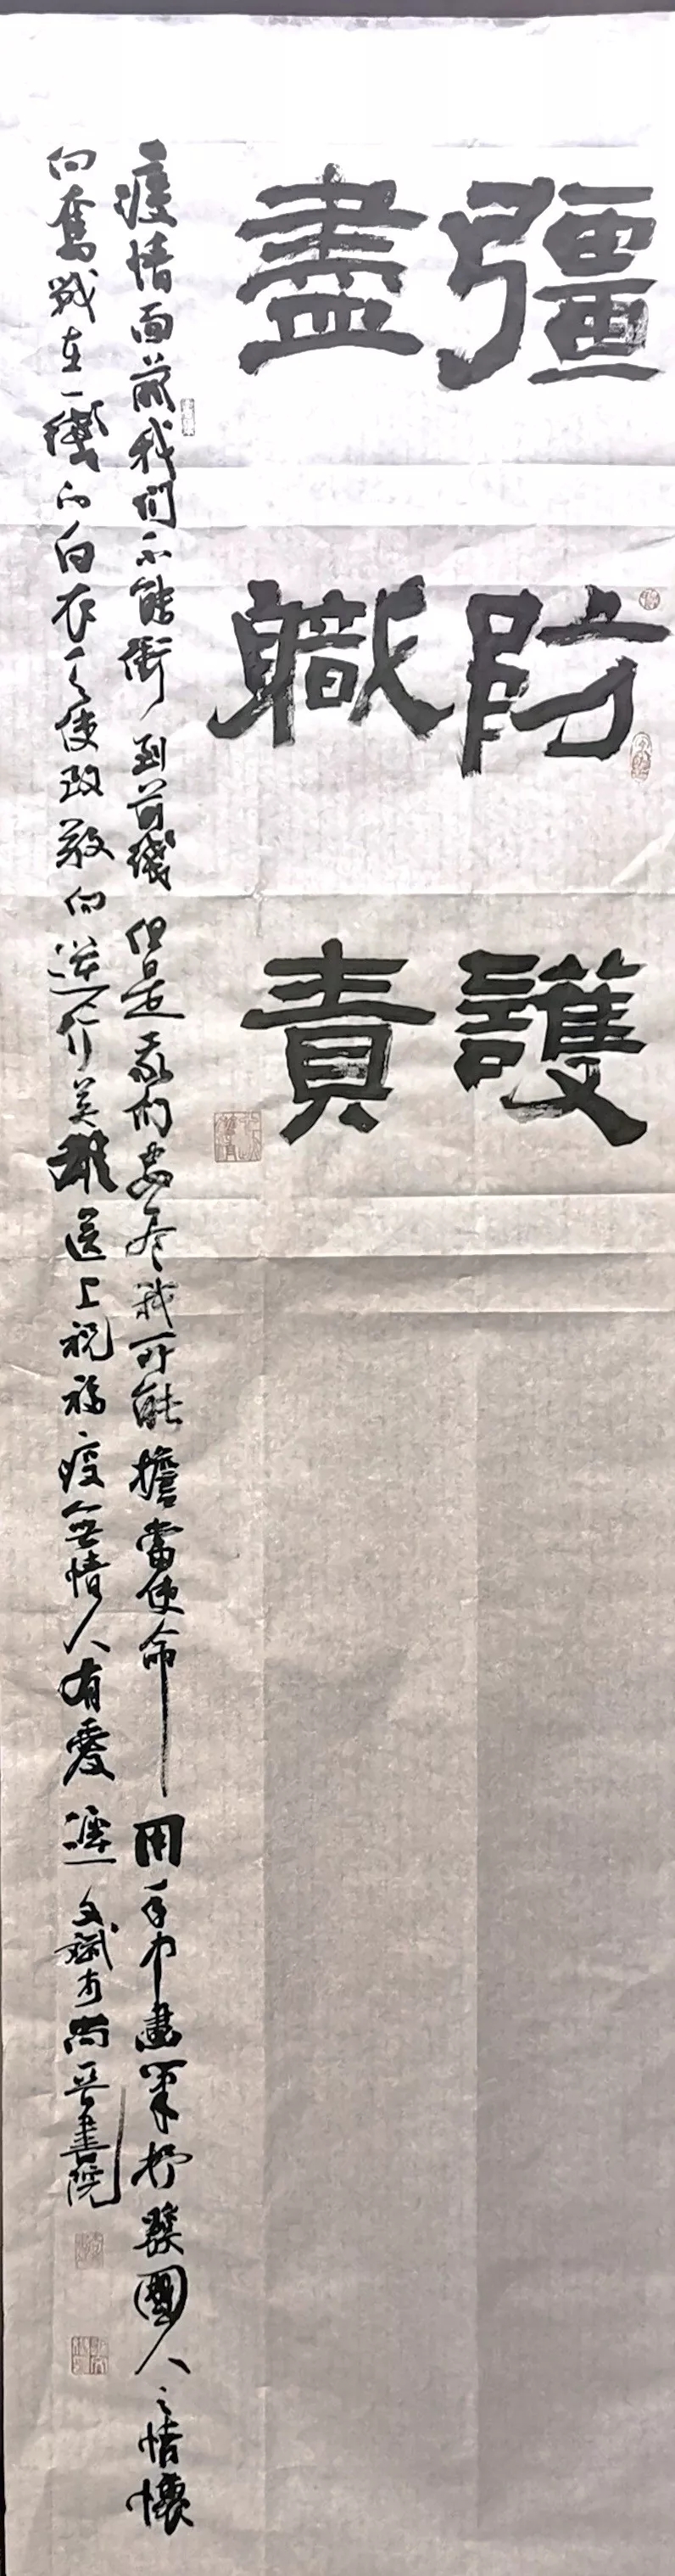 彊防護
盡職責
疫情面前我們不能衝到前綫但是我們要尽我可能擔當使命用手中畫筆抒發國人之情懷
向奮战在一綫的白衣天使致敬向逆行英雄送上祝福疫無情人有愛 文斌書 尚晉書院